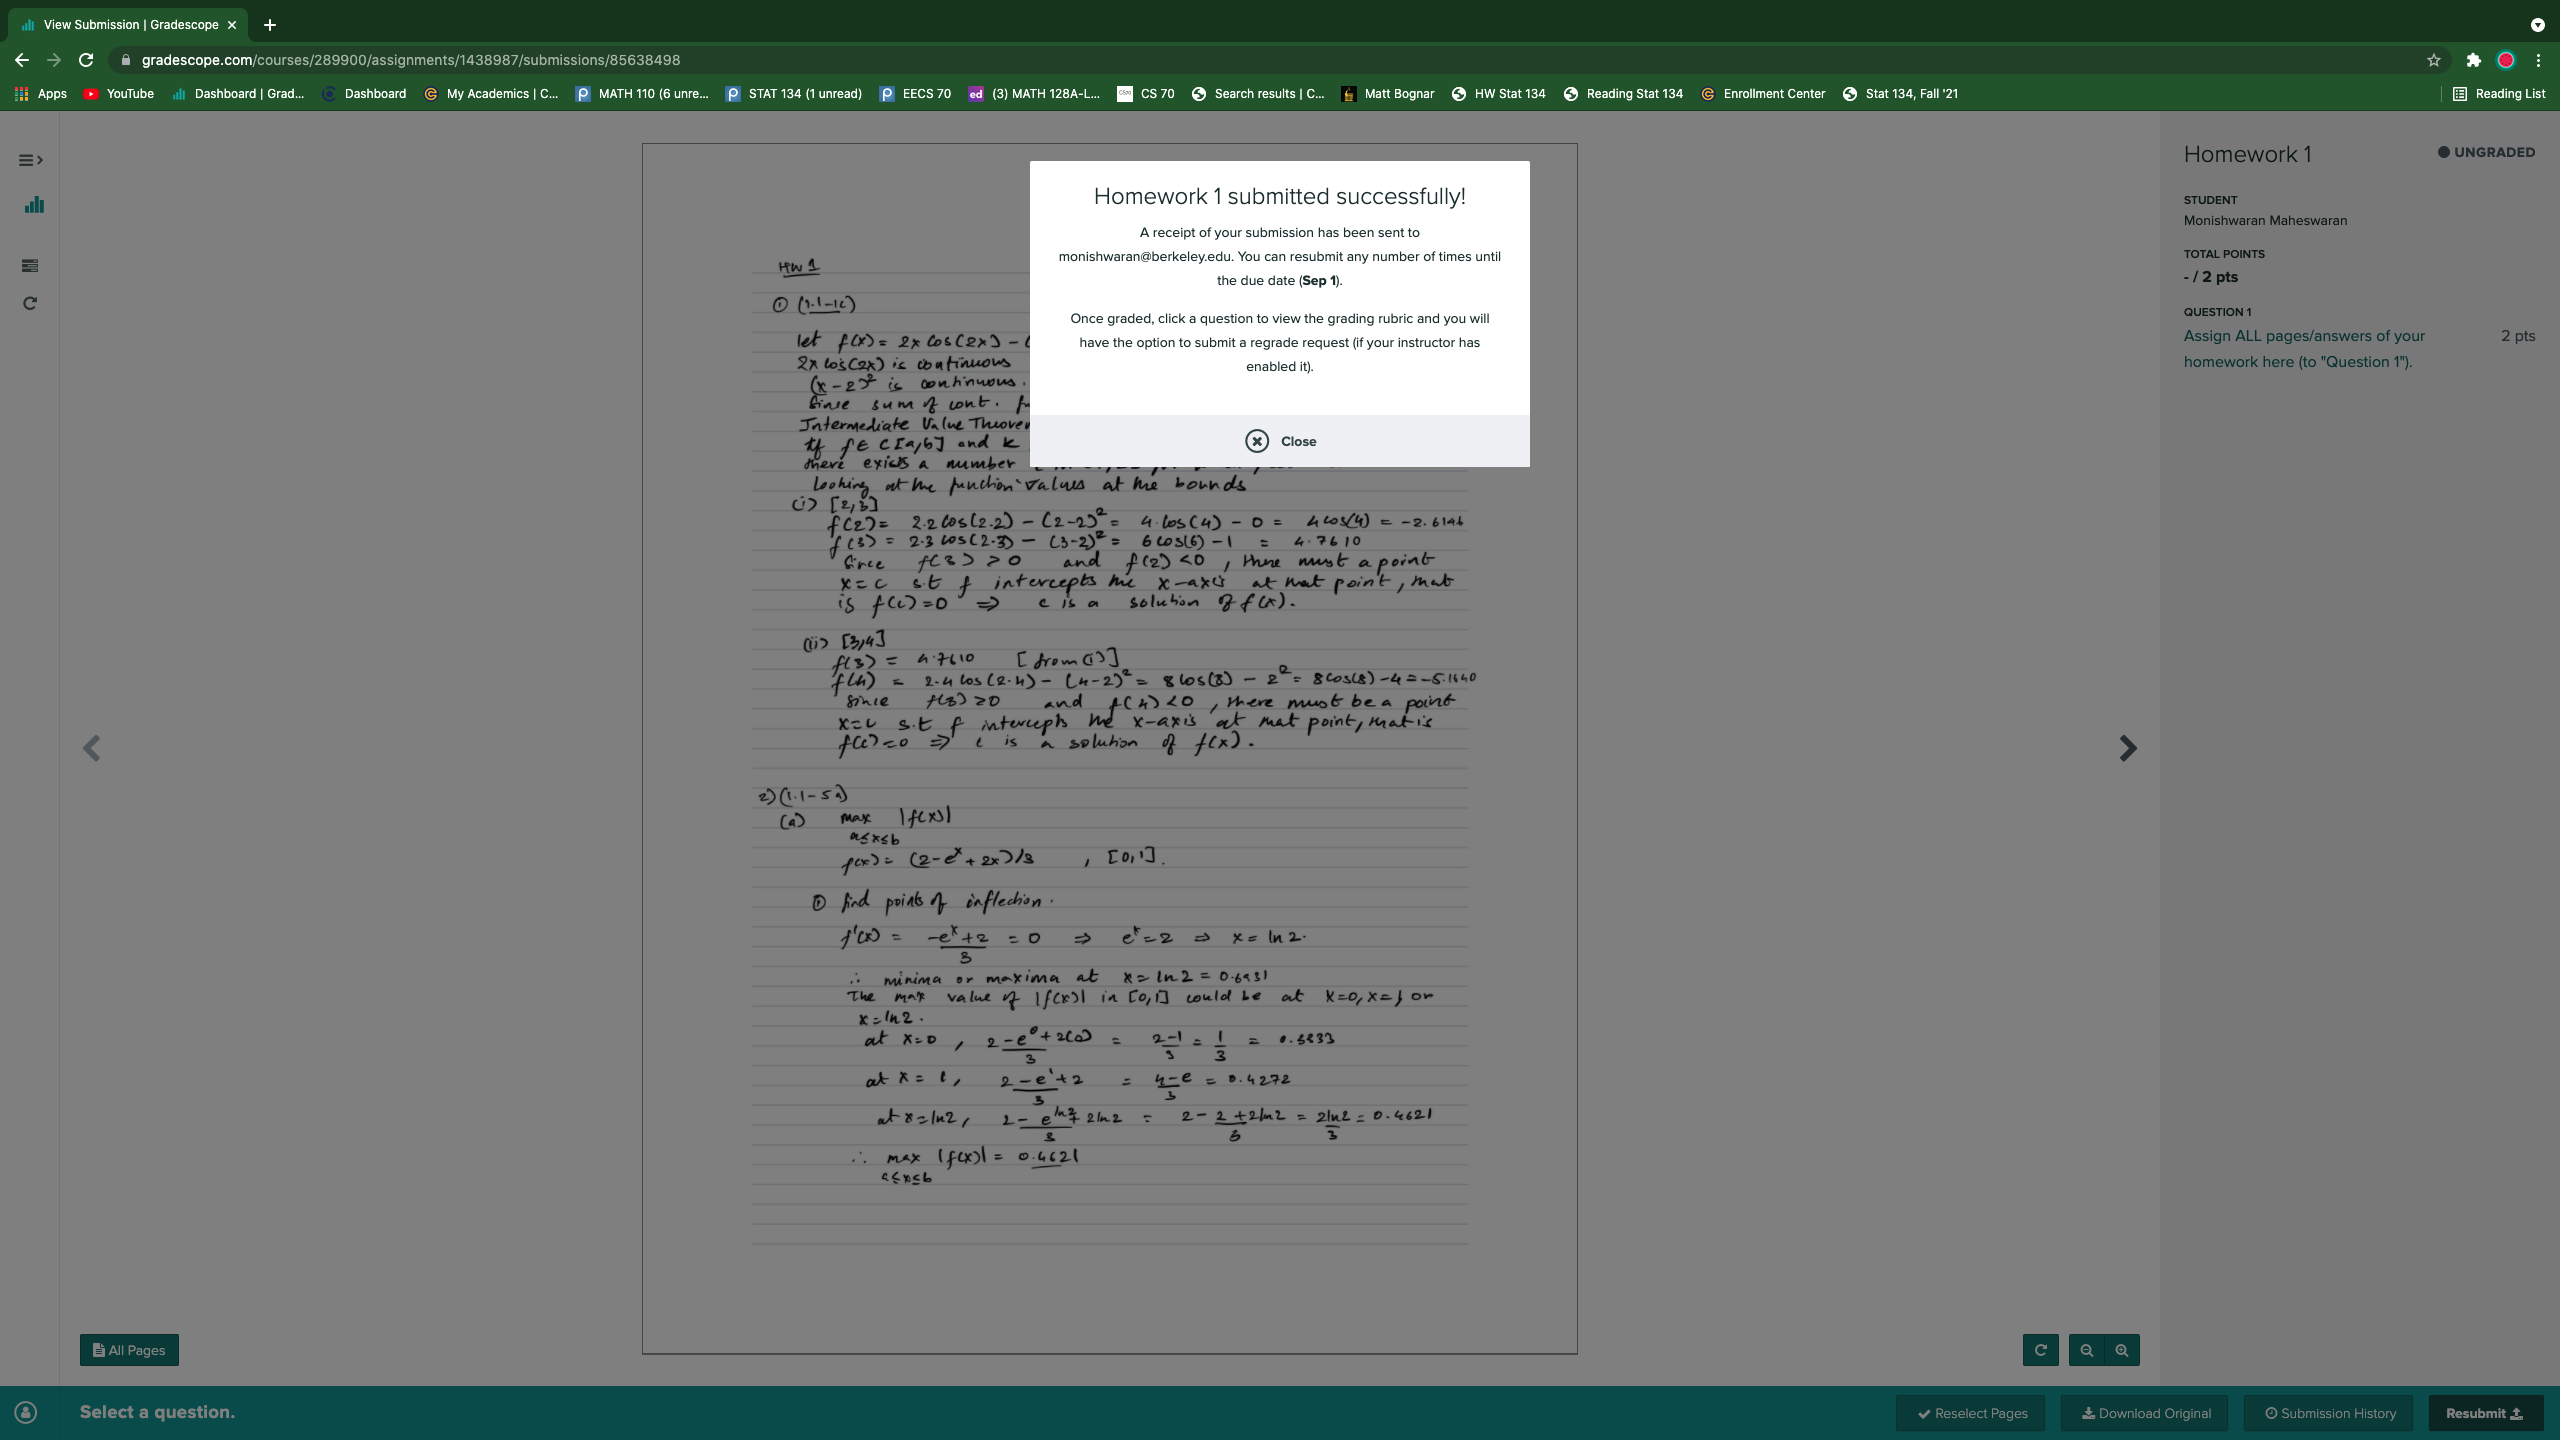 View Submission | Gradescope
gradescope.com/courses/289900/assignments/1438987/submissions/85638498
Apps YouTube Dashboard | Grad... Dashboard My Academics | C... MATH 110 (6 unre... STAT 134 (1 unread) EECS 70 (3) MATH 128A-L... CS 70 Search results | C... Matt Bognar HW Stat 134 Reading Stat 134 Enrollment Center Stat 134, Fall '21 Reading List
Homework 1 submitted successfully!
A receipt of your submission has been sent to
monishwaran@berkeley.edu. You can resubmit any number of times until
the due date (Sep 1).
Once graded, click a question to view the grading rubric and you will
have the option to submit a regrade request (if your instructor has
enabled it).
Close
HW 1
① (1.1-1c)
let f(x) = 2x cos(2x) - (
2x cos(2x) is continuous
(x-2)² is continuous.
Since sum of cont.
Intermediate Value Theorem
If f ∈ C[a,b] and k
there exists a number
looking at the function values at the bounds
(i) [2,3]
f(2) = 2.2 cos(2.2) - (2-2)² = 4.cos(4) - 0 = 4cos(4) = -2.6146
f(3) = 2.3 cos(2.3) - (3-2)² = 6cos(6) - 1 = 4.7610
Since f(3) > 0 and f(2) < 0, there must a point
x=c s.t f intercepts the x-axis at that point, that
is f(c)=0 ⇒ c is a solution of f(x).
(ii) [3,4]
f(3) = 4.7610 [from (i)]
f(4) = 2.4 cos(2.4) - (4-2)² = 8cos(8) - 2² = 8cos(8) - 4 = -5.1640
Since f(3) > 0 and f(4) < 0, there must be a point
x=c s.t f intercepts the x-axis at that point, that is
f(c)=0 ⇒ c is a solution of f(x).
2) (1.1-5a)
(a) max |f(x)|
a≤x≤b
f(x) = (2-eˣ+2x)/3 , [0,1].
① find points of inflection.
f'(x) = -eˣ+2 = 0 ⇒ eˣ=2 ⇒ x= ln 2.
3
∴ minima or maxima at x = ln 2 = 0.6931
The max value of |f(x)| in [0,1] could be at x=0, x=1 or
x=ln 2.
at x=0, 2-e⁰+2(0) = 2-1 = 1 = 0.3333
3 3 3
at x=1, 2-e¹+2 = 4-e = 0.4272
3 3
at x=ln2, 2-e^ln2+2ln2 = 2-2+2ln2 = 2ln2 = 0.4621
3 3 3
∴ max |f(x)| = 0.4621
a≤x≤b
Homework 1 UNGRADED
STUDENT
Monishwaran Maheswaran
TOTAL POINTS
- / 2 pts
QUESTION 1
Assign ALL pages/answers of your 2 pts
homework here (to "Question 1").
All Pages
Select a question. Reselect Pages Download Original Submission History Resubmit